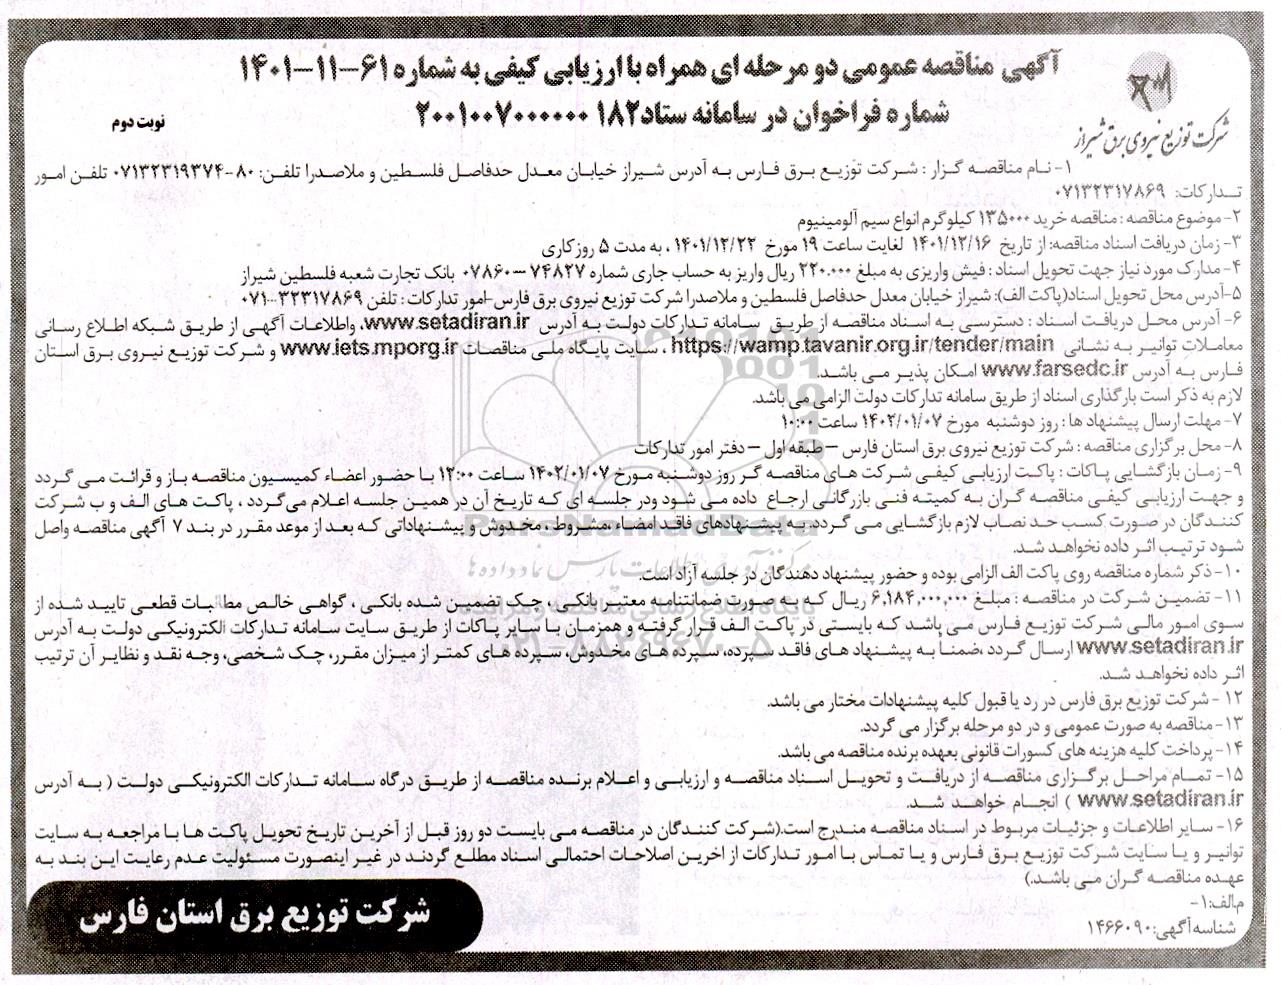 آگهی مناقصه عمومی دو مرحله ای همراه با ارزیابی کیفی به شماره ۶۱-۱۱-۱۴۰۱
شماره فراخوان در سامانه ستاد ۲۰۰۱۰۰۷۰۰۰۰۰۰۱۸۲
نوبت دوم
شرکت توزیع نیروی برق شیراز
۱- نام مناقصه گزار : شرکت توزیع برق فارس به آدرس شیراز خیابان معدل حدفاصل فلسطین و ملاصدرا تلفن: ۸۰-۰۷۱۳۲۳۱۹۳۷۴ تلفن امور
تدارکات: ۰۷۱۳۲۳۱۷۸۶۹
۲- موضوع مناقصه : مناقصه خرید ۱۳۵۰۰۰ کیلوگرم انواع سیم آلومینیوم
۳- زمان دریافت اسناد مناقصه: از تاریخ ۱۴۰۱/۱۲/۱۶ لغایت ساعت ۱۹ مورخ ۱۴۰۱/۱۲/۲۲ ، به مدت ۵ روز کاری
۴- مدارک مورد نیاز جهت تحویل اسناد : فیش واریزی به مبلغ ۲۲۰.۰۰۰ ریال واریز به حساب جاری شماره ۷۴۸۲۷-۰۷۸۶۰ بانک تجارت شعبه فلسطین شیراز
۵-آدرس محل تحویل اسناد(پاکت الف): شیراز خیابان معدل حدفاصل فلسطین و ملاصدرا شرکت توزیع نیروی برق فارس-امور تدارکات : تلفن ۳۲۳۱۷۸۶۹-۰۷۱
۶- آدرس محل دریافت اسناد : دسترسی به اسناد مناقصه از طریق سامانه تدارکات دولت به آدرس www.setadiran.ir، واطلاعات آگهی از طریق شبکه اطلاع رسانی
معاملات توانیر به نشانی https://wamp.tavanir.org.ir/tender/main ، سایت پایگاه ملی مناقصات www.iets.mporg.ir و شرکت توزیع نیروی برق استان
فارس به آدرس www.farsedc.ir امکان پذیر می باشد.
لازم به ذکر است بارگذاری اسناد از طریق سامانه تدارکات دولت الزامی می باشد.
۷- مهلت ارسال پیشنهاد ها : روز دوشنبه مورخ ۱۴۰۲/۰۱/۰۷ ساعت ۱۰:۰۰
۸- محل برگزاری مناقصه : شرکت توزیع نیروی برق استان فارس – طبقه اول – دفتر امور تدارکات
۹- زمان بازگشایی پاکات : پاکت ارزیابی کیفی شرکت های مناقصه گر روز دوشنبه مورخ ۱۴۰۲/۰۱/۰۷ ساعت ۱۲:۰۰ با حضور اعضاء کمیسیون مناقصه باز و قرائت می گردد
و جهت ارزیابی کیفی مناقصه گران به کمیته فنی بازرگانی ارجاع داده می شود ودر جلسه ای که تاریخ آن در همین جلسه اعلام می‌گردد ، پاکت های الف و ب شرکت
کنندگان در صورت کسب حد نصاب لازم بازگشایی می گردد. به پیشنهادهای فاقد امضاء ،مشروط ، مخدوش و پیشنهاداتی که بعد از موعد مقرر در بند ۷ آگهی مناقصه واصل
شود ترتیب اثر داده نخواهد شد.
۱۰-ذکر شماره مناقصه روی پاکت الف الزامی بوده و حضور پیشنهاد دهندگان در جلسه آزاد است.
۱۱- تضمین شرکت در مناقصه : مبلغ ۶,۱۸۴,۰۰۰,۰۰۰ ریال که به صورت ضمانتنامه معتبر بانکی ، چک تضمین شده بانکی ، گواهی خالص مطالبات قطعی تایید شده از
سوی امور مالی شرکت توزیع فارس می باشد که بایستی در پاکت الف قرار گرفته و همزمان با سایر پاکات از طریق سایت سامانه تدارکات الکترونیکی دولت به آدرس
www.setadiran.ir ارسال گردد ،ضمناً به پیشنهاد های فاقد سپرده، سپرده های مخدوش، سپرده های کمتر از میزان مقرر، چک شخصی، وجه نقد و نظایر آن ترتیب
اثر داده نخواهد شد.
۱۲ - شرکت توزیع برق فارس در رد یا قبول کلیه پیشنهادات مختار می باشد.
۱۳-مناقصه به صورت عمومی و در دو مرحله برگزار می گردد.
۱۴- پرداخت کلیه هزینه های کسورات قانونی بعهده برنده مناقصه می باشد.
۱۵- تمام مراحل برگزاری مناقصه از دریافت و تحویل اسناد مناقصه و ارزیابی و اعلام برنده مناقصه از طریق درگاه سامانه تدارکات الکترونیکی دولت ( به آدرس
www.setadiran.ir ) انجام خواهد شد.
۱۶- سایر اطلاعات و جزئیات مربوط در اسناد مناقصه مندرج است.(شرکت کنندگان در مناقصه می بایست دو روز قبل از آخرین تاریخ تحویل پاکت ها با مراجعه به سایت
توانیر و یا سایت شرکت توزیع برق فارس و یا تماس با امور تدارکات از اخرین اصلاحات احتمالی اسناد مطلع گردند در غیر اینصورت مسئولیت عدم رعایت این بند به
عهده مناقصه گران می باشد.)
م‌الف:۱-
شناسه آگهی: ۱۴۶۶۰۹۰
شرکت توزیع برق استان فارس
ParsNamadData
مرکز فرآوری اطلاعات پارس نماد داده ها
پایگاه اطلاع رسانی مناقصه و مزایده
۰۲۱-۸۸۳۴۹۶۷۰-۵